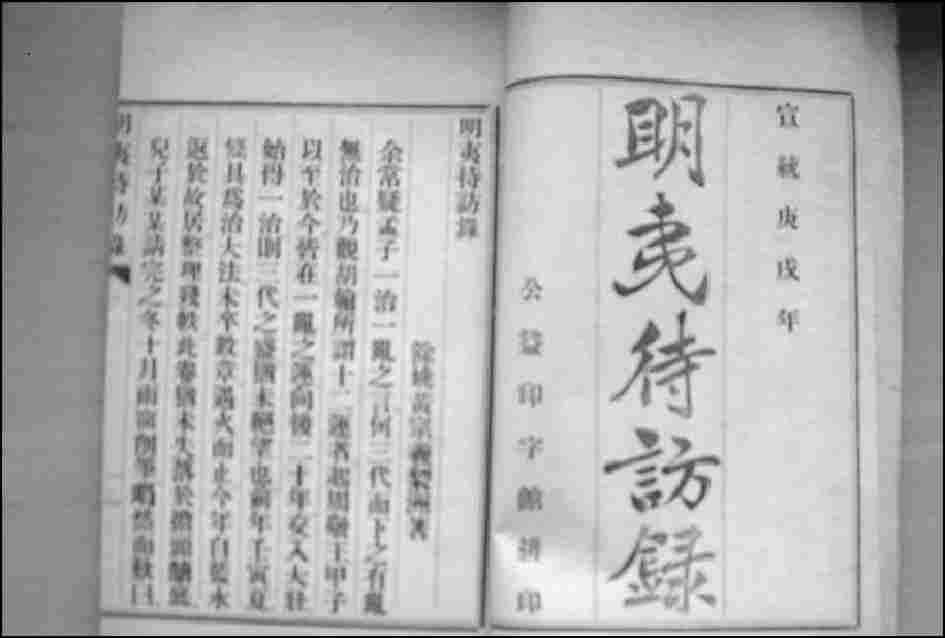 宣統庚戌年
明夷待訪錄
公益印字館印
明夷待訪錄
餘姚黃宗羲梨洲著
余常疑孟子一治一亂之言何三代而下之有亂
無治也乃觀胡翰所謂十二運者起周敬王甲子
以至於今皆在一亂之運向後二十年交入大壯
始得一治則三代之盛猶未絕望也前年壬寅夏
條具爲治大法未卒數章遇火而止今年自藍水
返於故居整理殘帙此卷猶未失落於擔頭艙底
兒子某某請完之冬十月雨窗削筆喟然而歎曰
明夷待訪錄